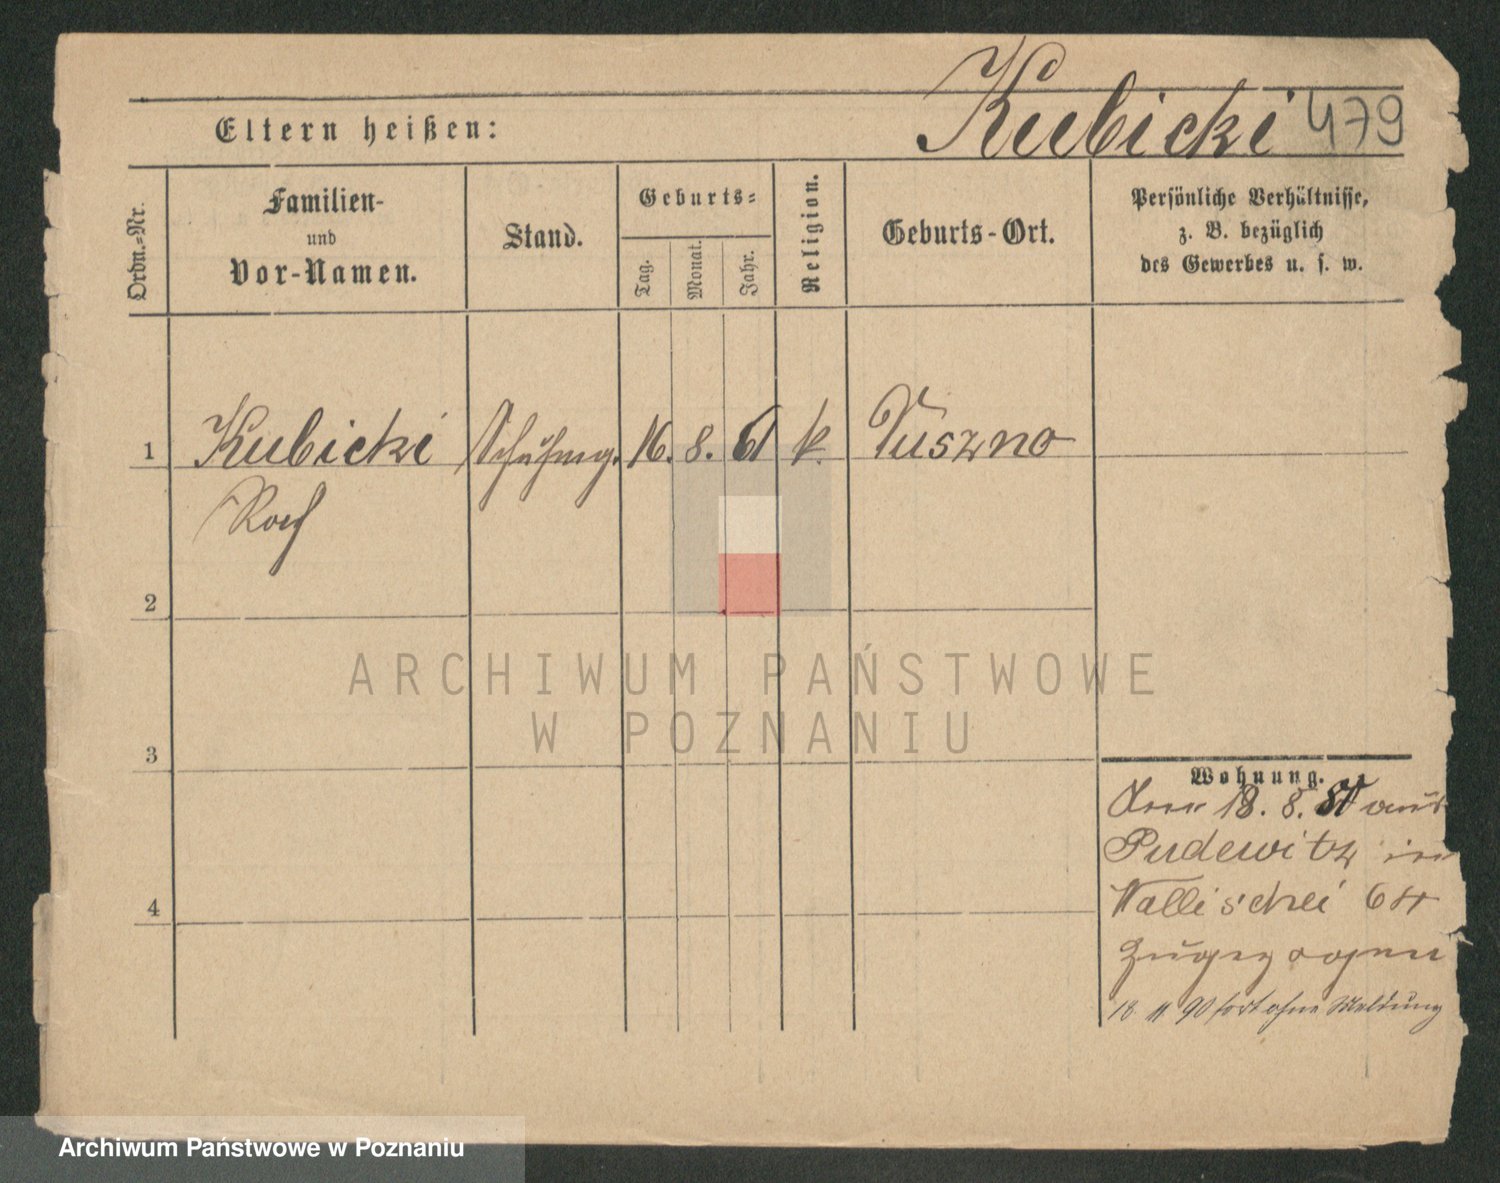 Kubicki 479
Eltern heißen:
Ordn.=Nr.
Familien-
und
Vor-Namen.
Stand.
Geburts=
Tag.
Monat.
Jahr.
Religion.
Geburts-Ort.
Persönliche Verhältnisse,
z. B. bezüglich
des Gewerbes u. s. w.
1 Kubicki Schuhmg. 16. 8. 61 k.
Roch
2
3
4
Wohnung.
Am 18. 8. aus
Pudewitz in
Wallischei
zugezogen
18 11 90 fort ohne Meldung
ARCHIWUM PAŃSTWOWE
W POZNANIU
Archiwum Państwowe w Poznaniu